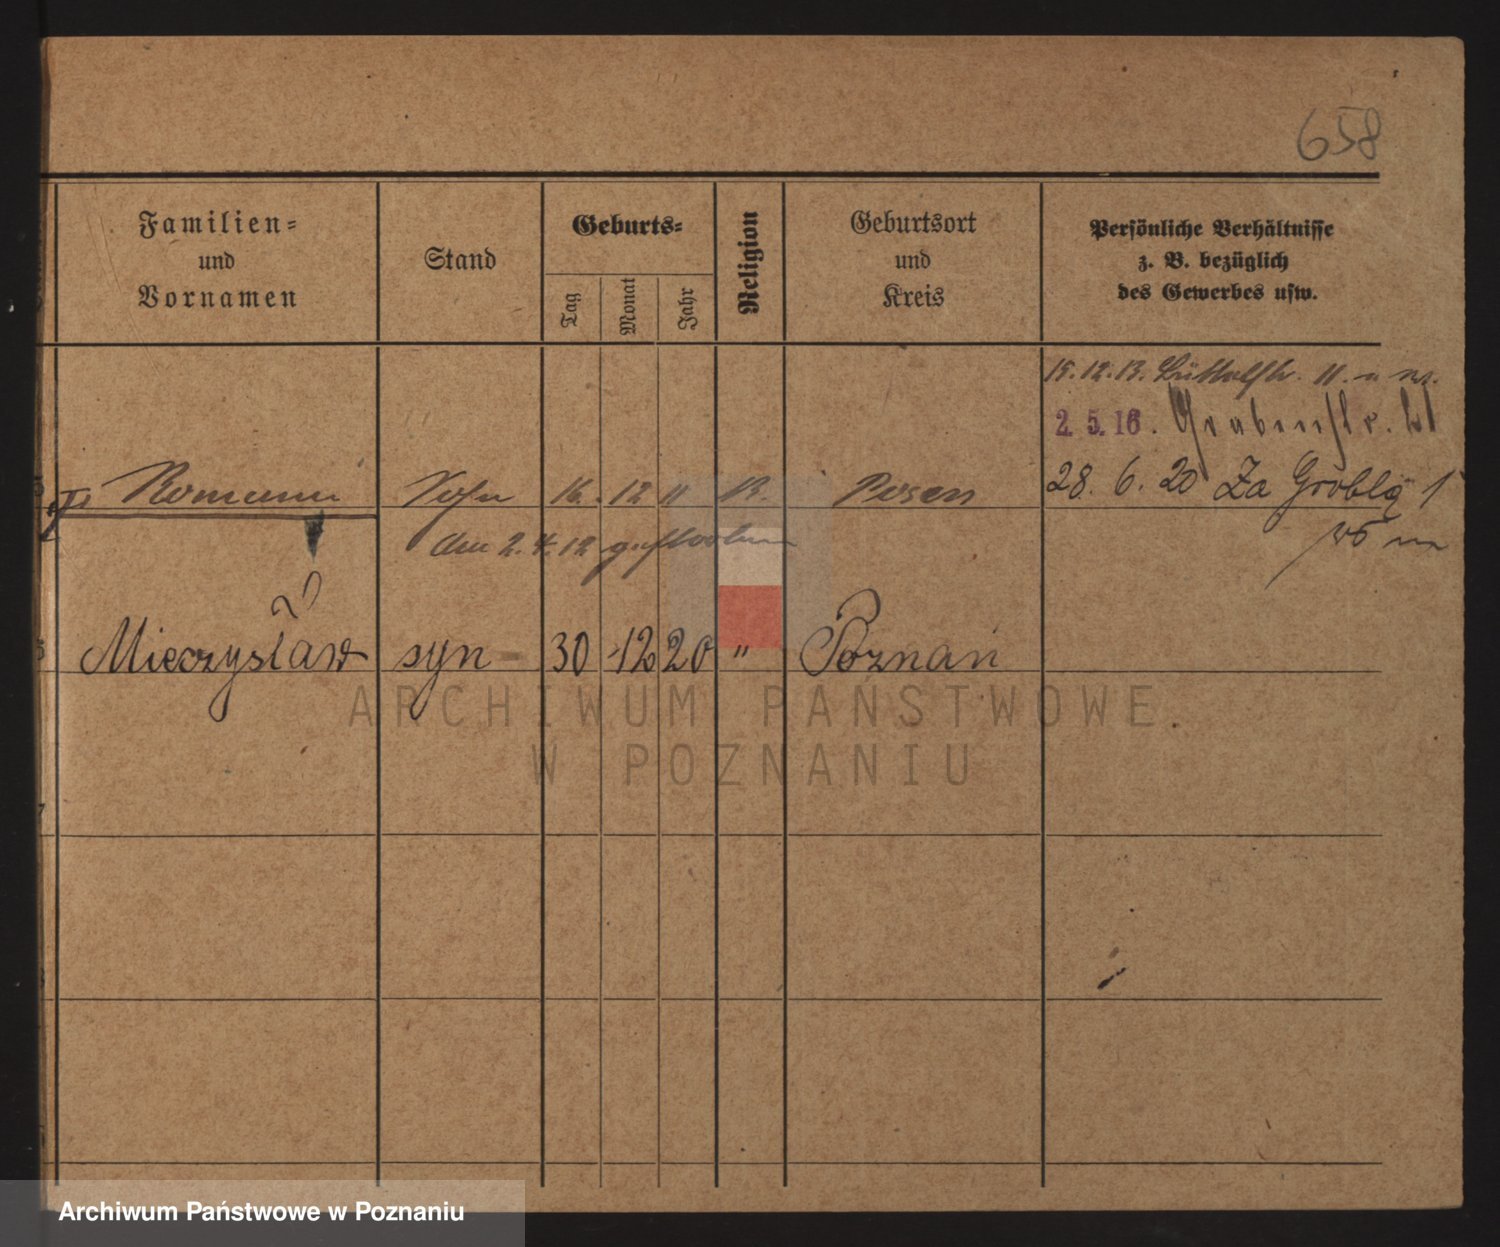 658
Familien=
und
Vornamen
Stand
Geburts=
Tag
Monat
Jahr
Religion
Geburtsort
und
Kreis
Persönliche Verhältnisse
z. B. bezüglich
des Gewerbes usw.
15. 12. 13. 11.
2. 5. 16. Grabenstr. 21
28. 6. 20 Za Groblą 1
Romann Sohn 16. 12 11 R. Posen
den 2. 4. 12 gestorben
Mieczysław syn 30 12 20 " Poznań
ARCHIWUM PAŃSTWOWE
W POZNANIU
Archiwum Państwowe w Poznaniu